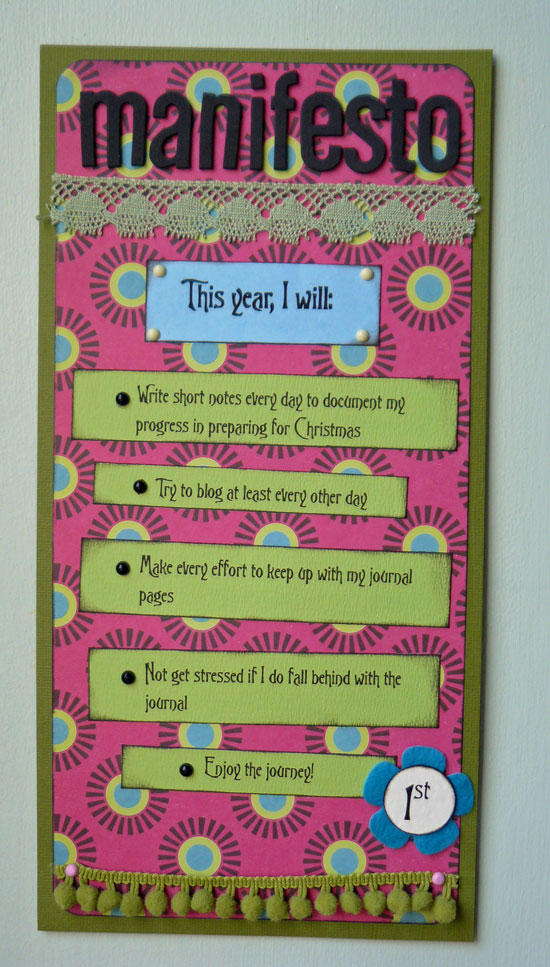 manifesto
This year, I will:
Write short notes every day to document my
progress in preparing for Christmas
Try to blog at least every other day
Make every effort to keep up with my journal
pages
Not get stressed if I do fall behind with the
journal
Enjoy the journey!
1st